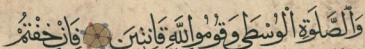 وَٱلصَّلَوٰةِ ٱلْوُسْطَى وَقُومُوا۟ لِلَّهِ قَانِتِينَ فَإِنْ خِفْتُمْ